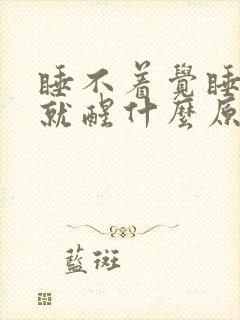 睡不着覺睡
就醒什麼原
藍斑